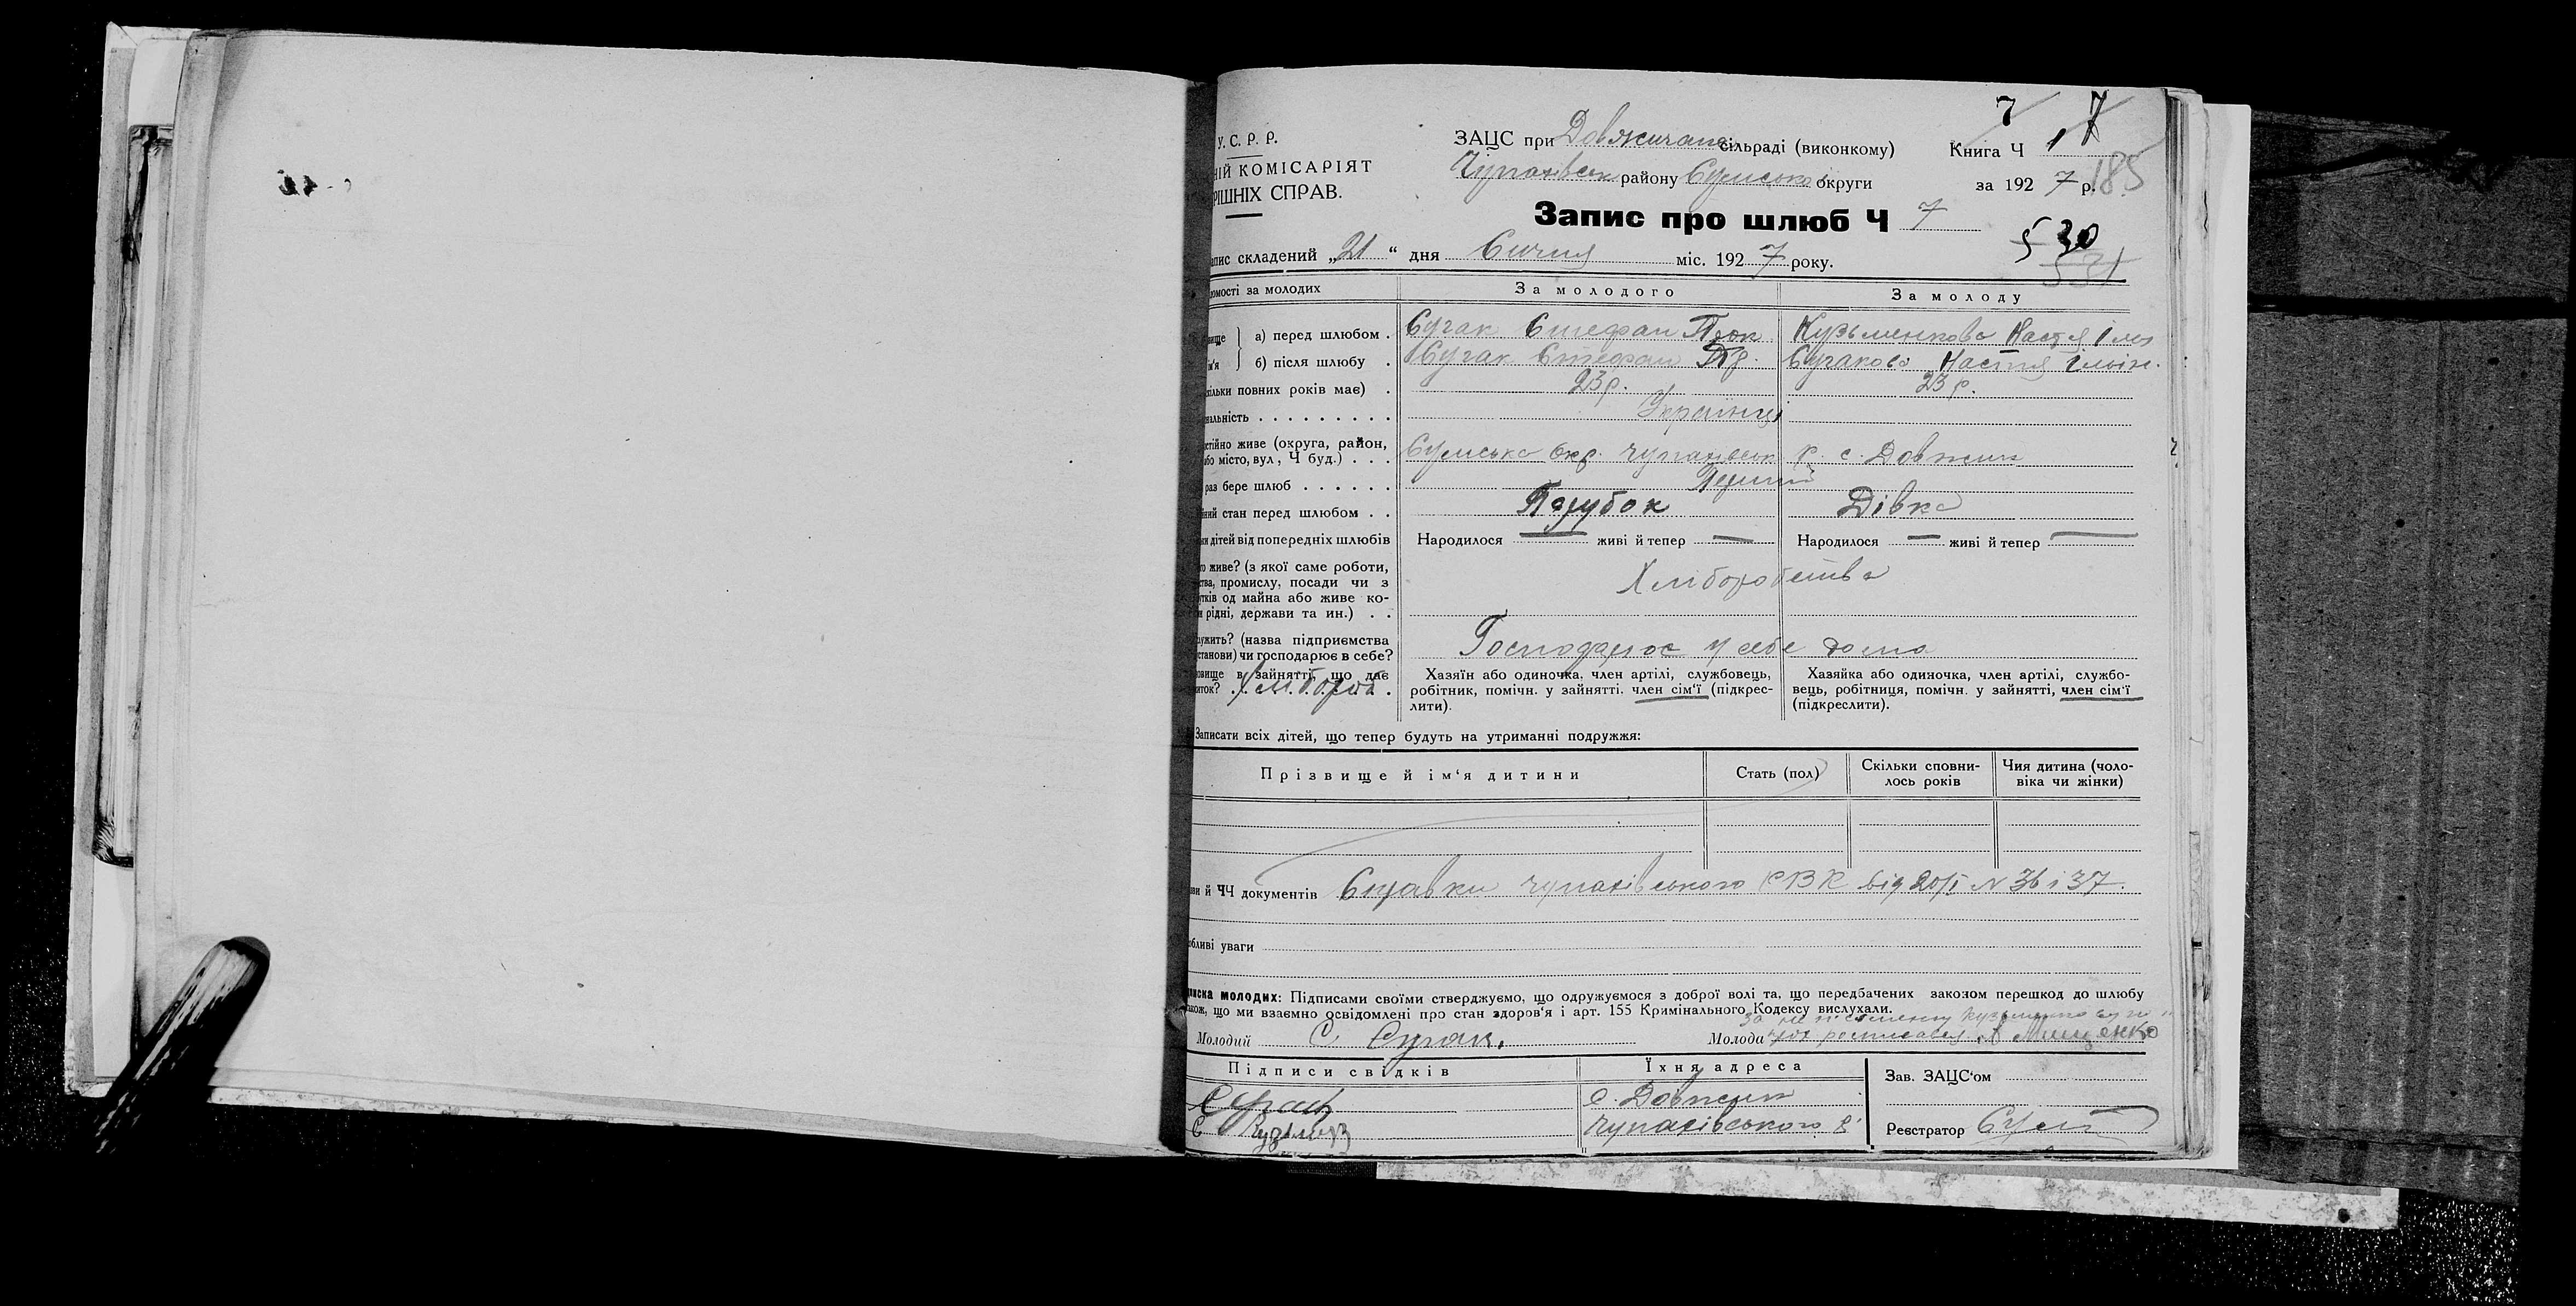 7 7
У. С. Р. Р.
ЗАЦС при Довжичан сільраді (виконкому) Книга Ч 1
НІЙ КОМІСАРІЯТ
Чупахівськ району Сумської округи за 1927 р. 185
РІШНІХ СПРАВ.
Запис про шлюб Ч 7
530
531
апис складений „21“ дня Січня міс. 1927 року.
омості за молодих За молодого За молоду
вище а) перед шлюбом . Сугак Стефан Прок Кузьменкова Настя Ілл
м'я б) після шлюбу . Сугак Стефан Пр. Сугакова Настя Ільін.
кільки повних років має) . 23 р. 23 р.
нальність . . . . . . . . . Українці
стійно живе (округа, район,
або місто, вул, Ч буд.) . . . Сумська Окр. Чупахівськ р. с. Довжик
раз бере шлюб . . . . . . Перший
ний стан перед шлюбом . . Парубок Дівка
ки дітей від попередніх шлюбів Народилося — живі й тепер — Народилося — живі й тепер —
го живе? (з якої саме роботи,
ства, промислу, посади чи з
утків од майна або живе ко-
и рідні, держави та ин.) . . Хліборобства
ружить? (назва підприємства
станови) чи господарює в себе? Господарює у себе дома
овище в зайнятті, що дає
иток? . . Хлібороб . Хазяїн або одиночка, член артілі, службовець, робітник, помічн. у зайнятті, член сім'ї (підкрес-
лити).
Хазяйка або одиночка, член артілі, службо-
вець, робітниця, помічн. у зайнятті, член сім'ї
(підкреслити).
Записати всіх дітей, що тепер будуть на утриманні подружжя:
Прізвище й ім'я дитини Стать (пол) Скільки сповни-
лось років Чия дитина (чоло-
віка чи жінки)
ви й ЧЧ документів Справки Чупахівського РВК від 20/I N 36 і 37.
обливі уваги
писка молодих: Підписами своїми стверджуємо, що одружуємося з доброї волі та, що передбачених законом перешкод до шлюбу
акож, що ми взаємно освідомлені про стан здоров'я і арт. 155 Кримінального Кодексу вислухали.
Молодий С Сугак. Молода расписався А Мищенко
Підписи свідків Їхня адреса Зав. ЗАЦС'ом
Сугак с. Довжик
С Кузьмен Чупахівського р. Реєстратор